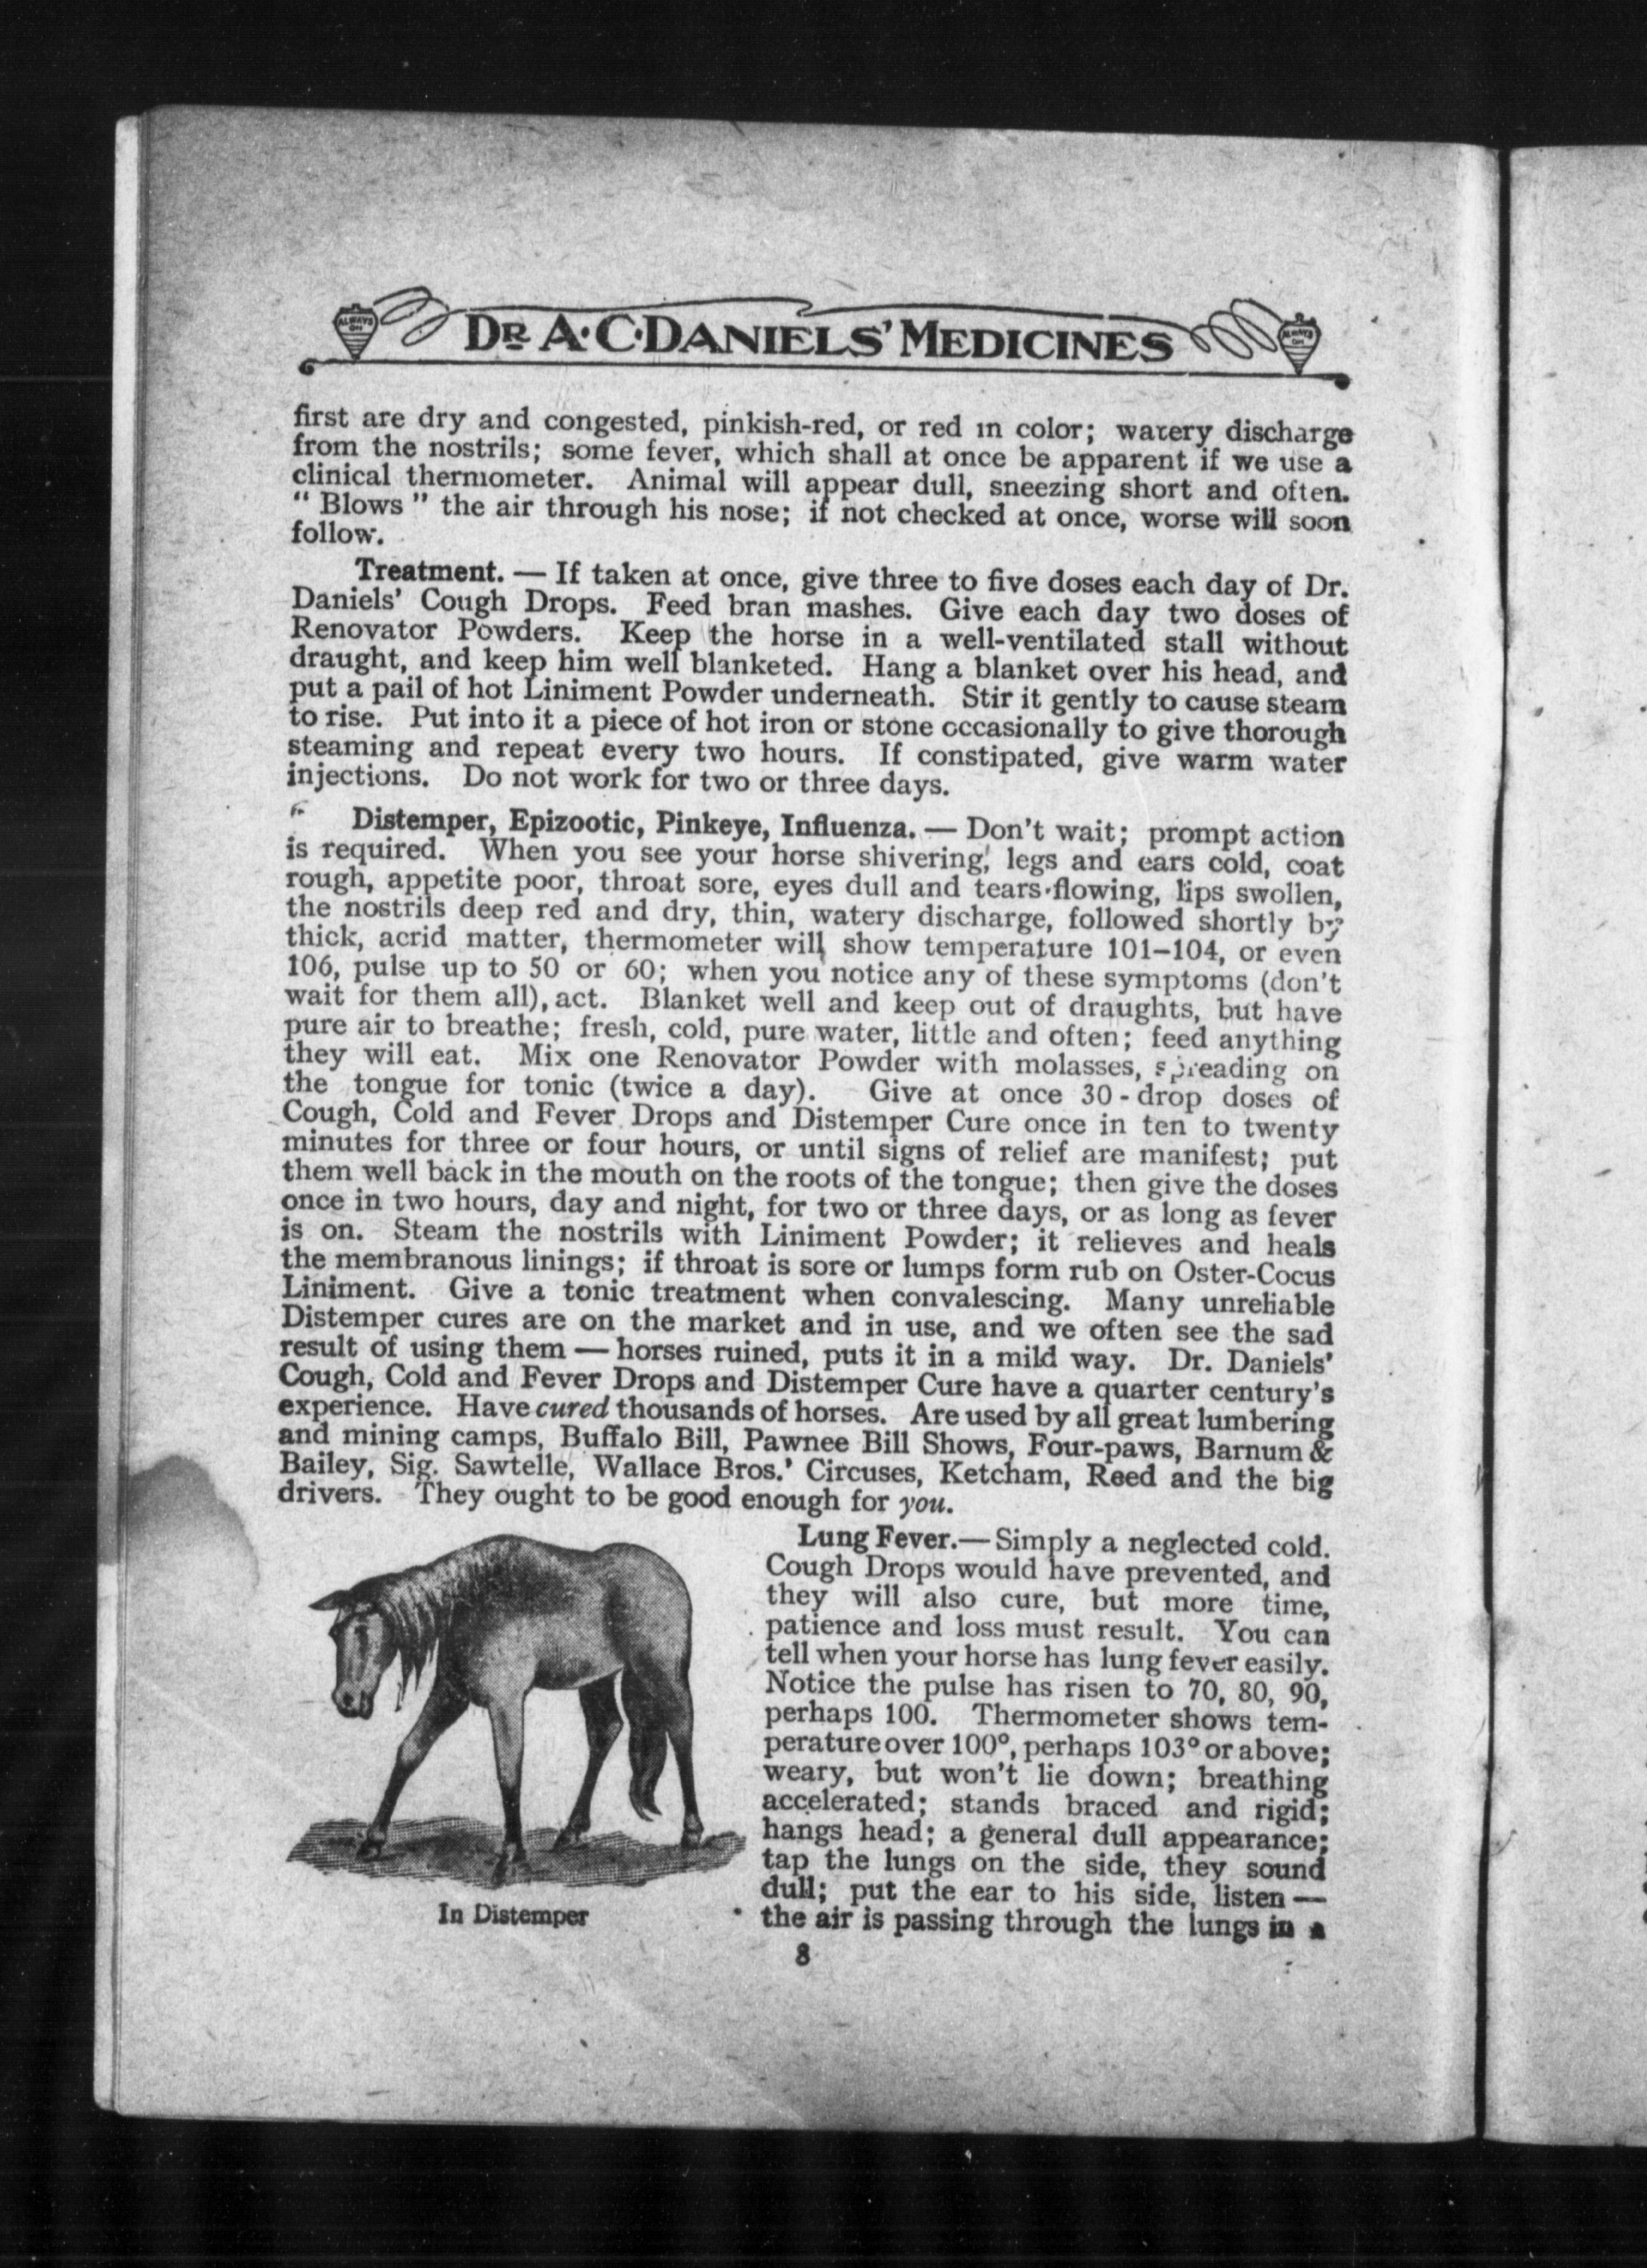 ALWAYS ON
DR A·C·DANIELS' MEDICINES
ALWAYS ON
first are dry and congested, pinkish-red, or red in color; watery discharge
from the nostrils; some fever, which shall at once be apparent if we use a
clinical thermometer. Animal will appear dull, sneezing short and often.
" Blows " the air through his nose; if not checked at once, worse will soon
follow.
Treatment. — If taken at once, give three to five doses each day of Dr.
Daniels' Cough Drops. Feed bran mashes. Give each day two doses of
Renovator Powders. Keep the horse in a well-ventilated stall without
draught, and keep him well blanketed. Hang a blanket over his head, and
put a pail of hot Liniment Powder underneath. Stir it gently to cause steam
to rise. Put into it a piece of hot iron or stone occasionally to give thorough
steaming and repeat every two hours. If constipated, give warm water
injections. Do not work for two or three days.
Distemper, Epizootic, Pinkeye, Influenza. — Don't wait; prompt action
is required. When you see your horse shivering, legs and ears cold, coat
rough, appetite poor, throat sore, eyes dull and tears flowing, lips swollen,
the nostrils deep red and dry, thin, watery discharge, followed shortly by
thick, acrid matter, thermometer will show temperature 101–104, or even
106, pulse up to 50 or 60; when you notice any of these symptoms (don't
wait for them all), act. Blanket well and keep out of draughts, but have
pure air to breathe; fresh, cold, pure water, little and often; feed anything
they will eat. Mix one Renovator Powder with molasses, spreading on
the tongue for tonic (twice a day). Give at once 30-drop doses of
Cough, Cold and Fever Drops and Distemper Cure once in ten to twenty
minutes for three or four hours, or until signs of relief are manifest; put
them well back in the mouth on the roots of the tongue; then give the doses
once in two hours, day and night, for two or three days, or as long as fever
is on. Steam the nostrils with Liniment Powder; it relieves and heals
the membranous linings; if throat is sore or lumps form rub on Oster-Cocus
Liniment. Give a tonic treatment when convalescing. Many unreliable
Distemper cures are on the market and in use, and we often see the sad
result of using them — horses ruined, puts it in a mild way. Dr. Daniels'
Cough, Cold and Fever Drops and Distemper Cure have a quarter century's
experience. Have cured thousands of horses. Are used by all great lumbering
and mining camps, Buffalo Bill, Pawnee Bill Shows, Four-paws, Barnum &
Bailey, Sig. Sawtelle, Wallace Bros.' Circuses, Ketcham, Reed and the big
drivers. They ought to be good enough for you.
Lung Fever.— Simply a neglected cold.
Cough Drops would have prevented, and
they will also cure, but more time,
patience and loss must result. You can
tell when your horse has lung fever easily.
Notice the pulse has risen to 70, 80, 90,
perhaps 100. Thermometer shows tem-
perature over 100°, perhaps 103° or above;
weary, but won't lie down; breathing
accelerated; stands braced and rigid;
hangs head; a general dull appearance;
tap the lungs on the side, they sound
dull; put the ear to his side, listen —
the air is passing through the lungs in a
In Distemper
8